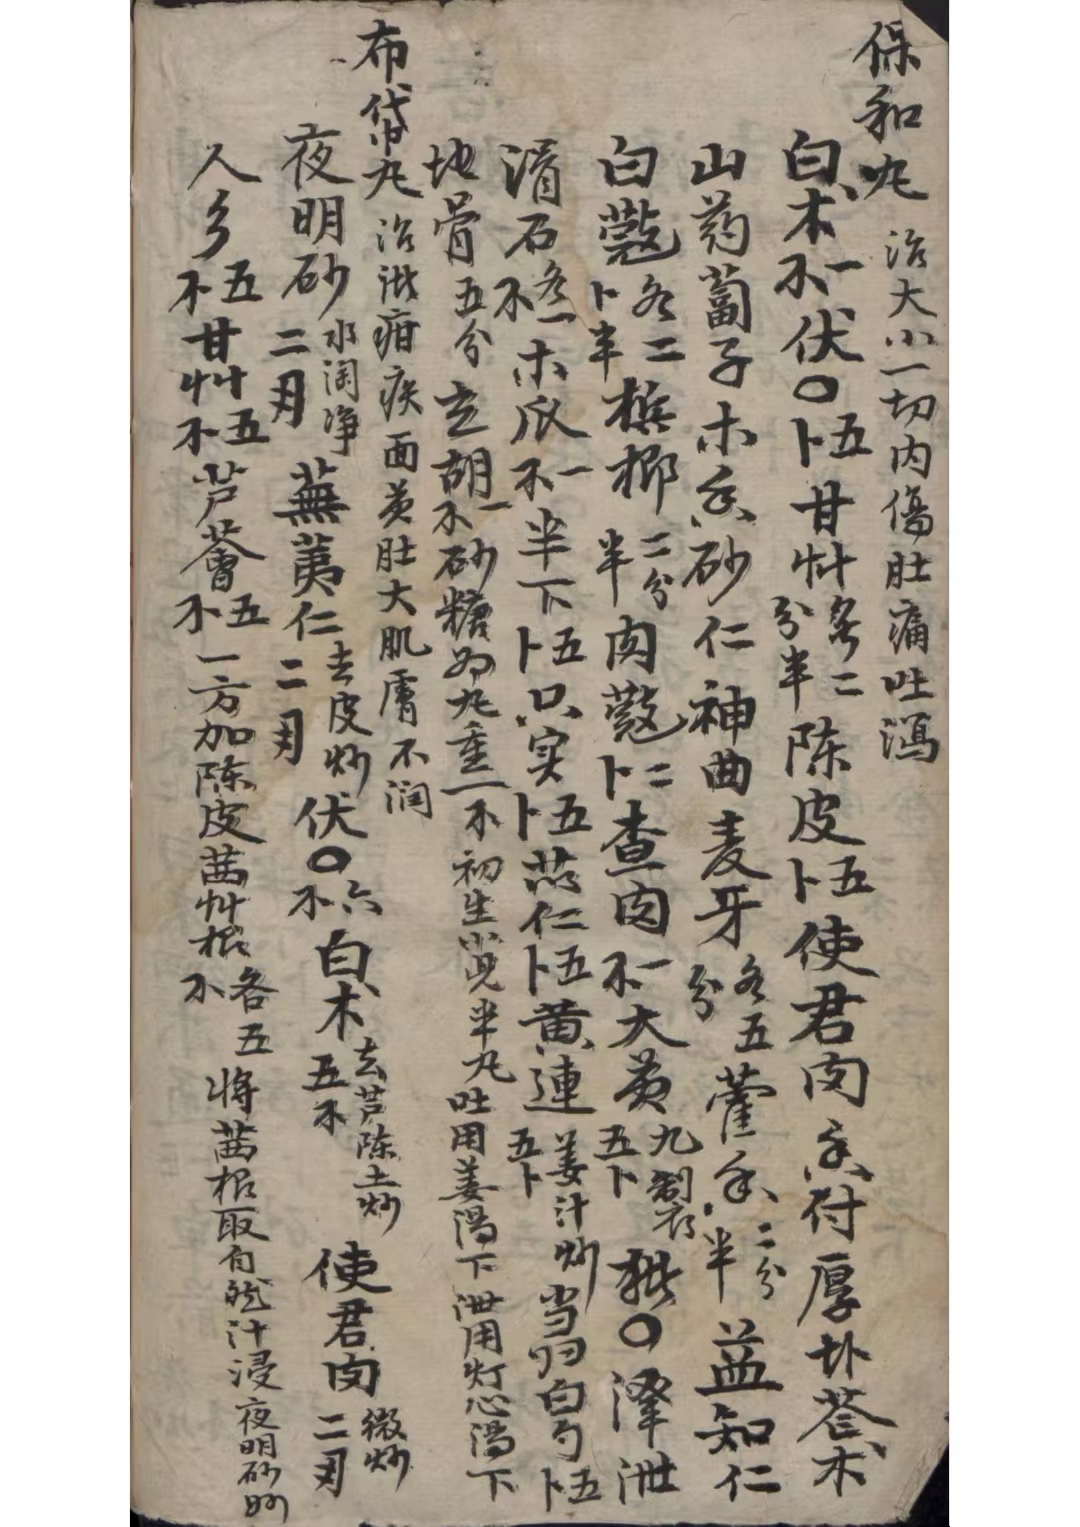 保和丸 治大小一切内傷肚痛吐瀉
白术一不伏〇五卜甘艸各二分半陈皮五卜使君肉香付厚朴苍术
山药蔔子木香砂仁神曲麦牙各五分藿香二分半益知仁
白蔻各二卜半槟榔二分半肉蔻二卜查肉一不大黄九制五卜猪〇泽泄
滑石各一不木瓜一不半下五卜只实五卜苡仁五卜黄連姜汁炒五卜当归白勺五卜
地骨五分玄胡一不砂糖为丸重一不初生小児半丸吐用姜湯下泄用灯心湯下
布袋丸 治洪疳疾面黄肚大肌膚不润
夜明砂水淘净二刄蕪荑仁去皮炒二刄伏〇六不白术去芦陈土炒五不使君肉微炒二刄
人参五不甘艸五不芦薈五不一方加陈皮茜艸根各五不将茜根取自然汁浸夜明砂